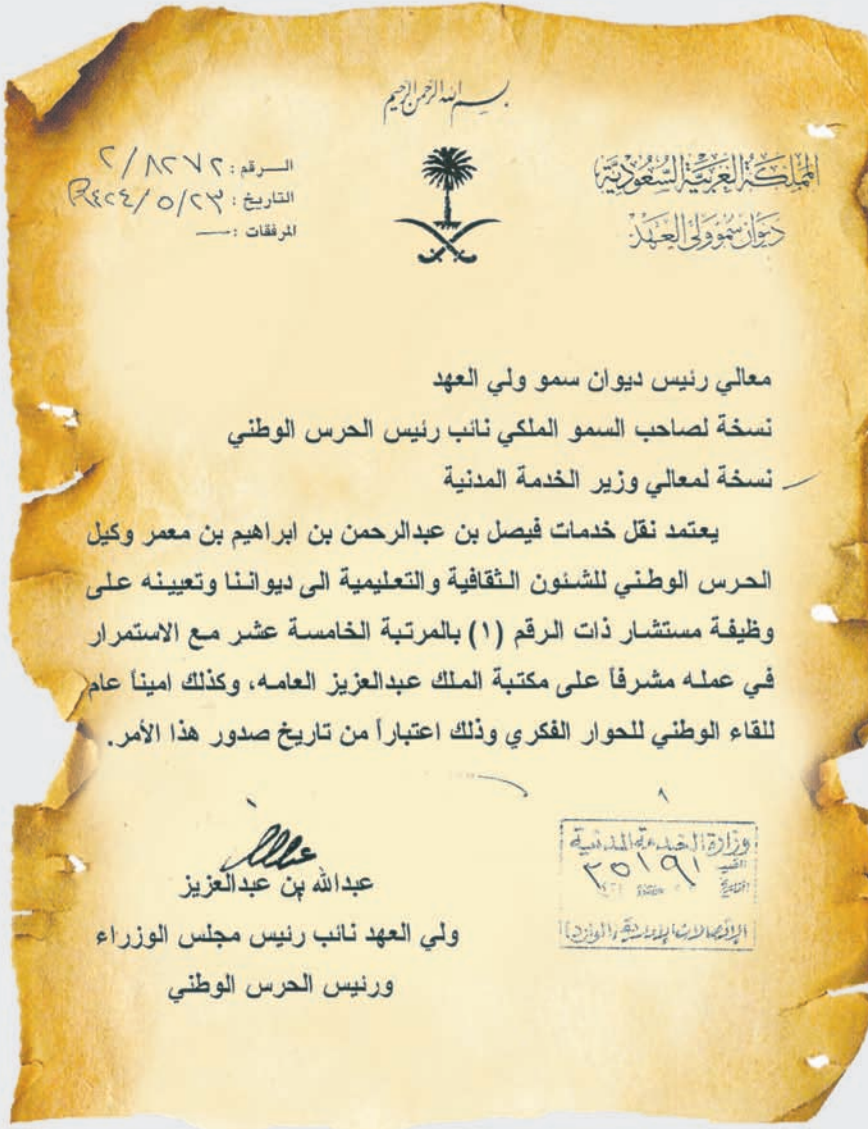 بسم الله الرحمن الرحيم
المملكة العربية السعودية
ديوان سمو ولي العهد
الـــرقم : ٢/٨٢٧٢
التاريخ : ١٤٢٤/٥/٢٣هـ
المرفقات : —
معالي رئيس ديوان سمو ولي العهد
نسخة لصاحب السمو الملكي نائب رئيس الحرس الوطني
نسخة لمعالي وزير الخدمة المدنية
يعتمد نقل خدمات فيصل بن عبدالرحمن بن ابراهيم بن معمر وكيل
الحرس الوطني للشئون الثقافية والتعليمية الى ديواننا وتعيينه على
وظيفة مستشار ذات الرقم (١) بالمرتبة الخامسة عشر مع الاستمرار
في عمله مشرفاً على مكتبة الملك عبدالعزيز العامه، وكذلك اميناً عام
للقاء الوطني للحوار الفكري وذلك اعتباراً من تاريخ صدور هذا الأمر.
عبدالله بن عبدالعزيز
ولي العهد نائب رئيس مجلس الوزراء
ورئيس الحرس الوطني
وزارة الخدمة المدنية
٣٥١٩١